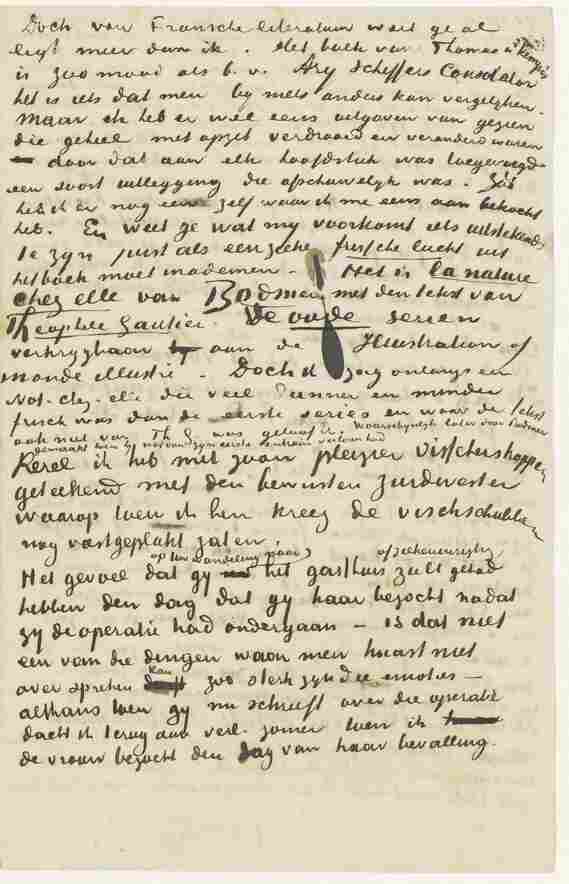 Doch van Fransche literatuur weet ge al
ligt meer dan ik. Het boek van Thomas a Kempis
is zoo mooi als b.v. Ary Scheffers Consolator
het is iets dat men by niets anders kan vergelyken.
Maar ik heb er wel eens uitgaven van gezien
die geheel met opzet verdraaid en veranderd waren
door dat aan elk hoofdstuk was toegevoegd
een soort uitlegging die afschuwelyk was. Zóó
heb ik er nog een zelf waar ik me eens aan bekocht
heb. En weet ge wat my voorkomt iets uitstekends
te zyn juist als een zekere frissche lucht uit
het boek moet inademen. – Het is la nature
chez elle van Bodmer met den tekst van
Théophile Gautier. De oude serien
verkrygbaar aan de Illustration of
monde illustré – Doch ik zag onlangs en
Nat. chez elle die veel dunner en minder
frisch was dan de eerste series en waar de tekst
ook niet van Th. G. was geloof ik. Waarschynlyk later door Bodmer
gemaakt toen hy na van zyn eerste entrain verloren had
Kerel ik heb met zooveel pleizier visscherskoppen
geteekend met den bewusten zuidwester
waarop toen ik hem kreeg de vischschubben
nog vastgeplakt zaten.
op Uw wandeling naar of ziekeninrigting
Het gevoel dat gy het gasthuis zult gehad
hebben den dag dat gy haar bezocht nadat
zy de operatie had ondergaan – is dat niet
een van die dingen waar men haast niet
over spreken kan zoo sterk zyn die emoties –
althans toen gy nu schreeft over die operatie
dacht ik terug aan verl. zomer toen ik
de vrouw bezocht den dag van haar bevalling.